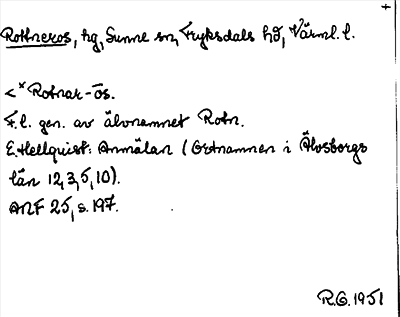 Rottneros, hg, Sunne sn, Fryksdals hd, Värml. l.
< *Rotnar-ōs.
F. l. gen. av älvnamnet Rotn.
E. Hellquist: Anmälan (Ortnamnen i Älvsborgs
län 12, 3, 5, 10).
ANF 25, s. 197.
R.G. 1951